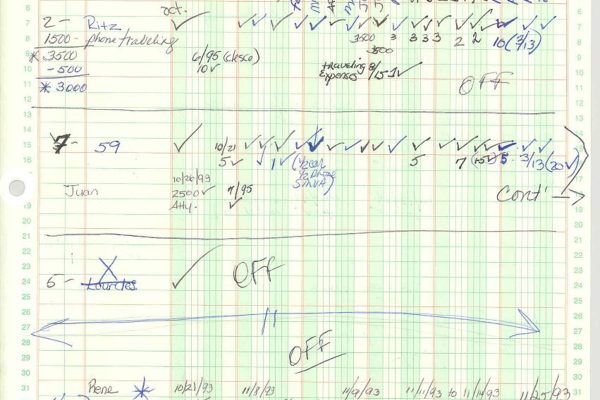 oct.
2- Ritz ✓ ✓ ✓ ✓ ✓ ✓ ✓ ✓ ✓ ✓ ✓ ✓ ✓ ✓
1500- phone traveling 3500 3 3 3 3 2 2 10 (3/13)
* 3500 6/95 (close) 3500
-500 10✓ traveling 8/
* 3000 Expenses 15-1✓ OFF
7- 59 ✓ 10/21 ✓ ✓ ✓ ✓ ✓ ✓ ✓ ✓ ✓ ✓ ✓ ✓ ✓ ✓
5✓ 1✓ 5 7 5 3/13 (20✓)
10/26/93
Juan 2500✓ 7/95 Cont'
Atty. ✓
5- X Lourdes ✓ OFF
11
OFF
Rene * 10/21/93 11/8/93 11/9/93 11/11/93 to 11/14/93 11/25/93
5
6
7
8
9
10
11
12
13
14
15
16
19
20
21
22
23
24
25
26
27
28
29
30
31